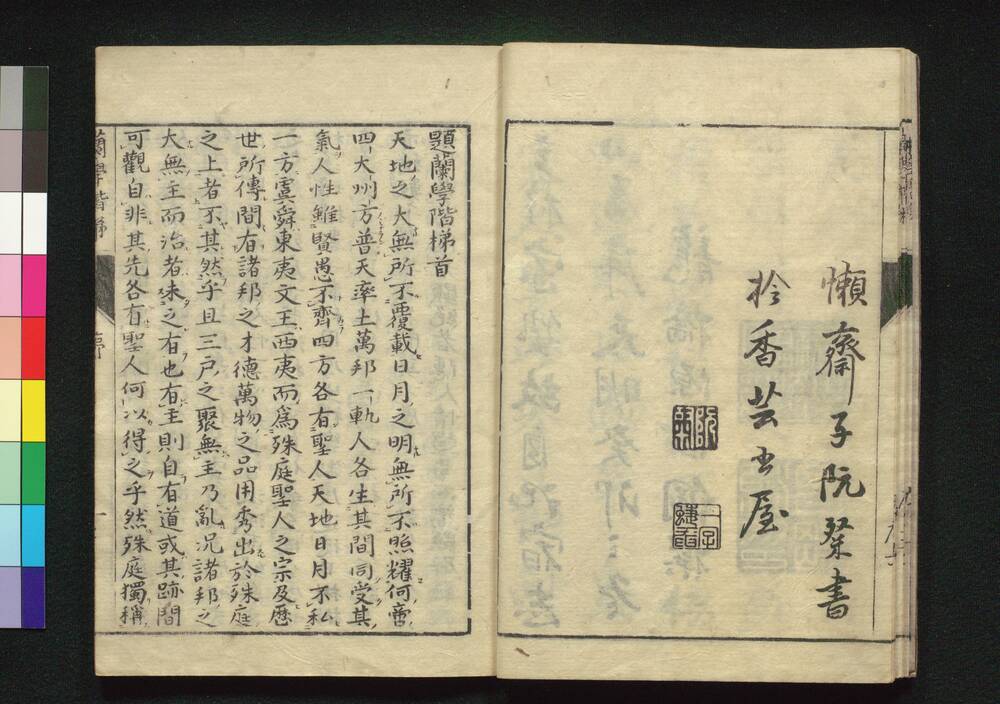 懶齋子阮琹書
拎香芸古屋
題蘭學階梯首
天地之大無所不覆載日月之明無所不照耀何啻
四大州方普天率土萬邦一軌人各生其間同受其
氣人性雖賢愚不齊四方各有聖人天地日月不私
一方虞舜東夷文王西夷而爲殊庭聖人之宗及歷
世所傳間有諸邦之才德萬物之品用秀出於殊庭
之上者不其然乎且三戸之聚無主乃亂况諸邦之
大無主而治者未之有也有主則自有道或其跡間
可觀自非其先各有聖人何以得之乎然殊庭獨稱
蘭學階梯
序
一